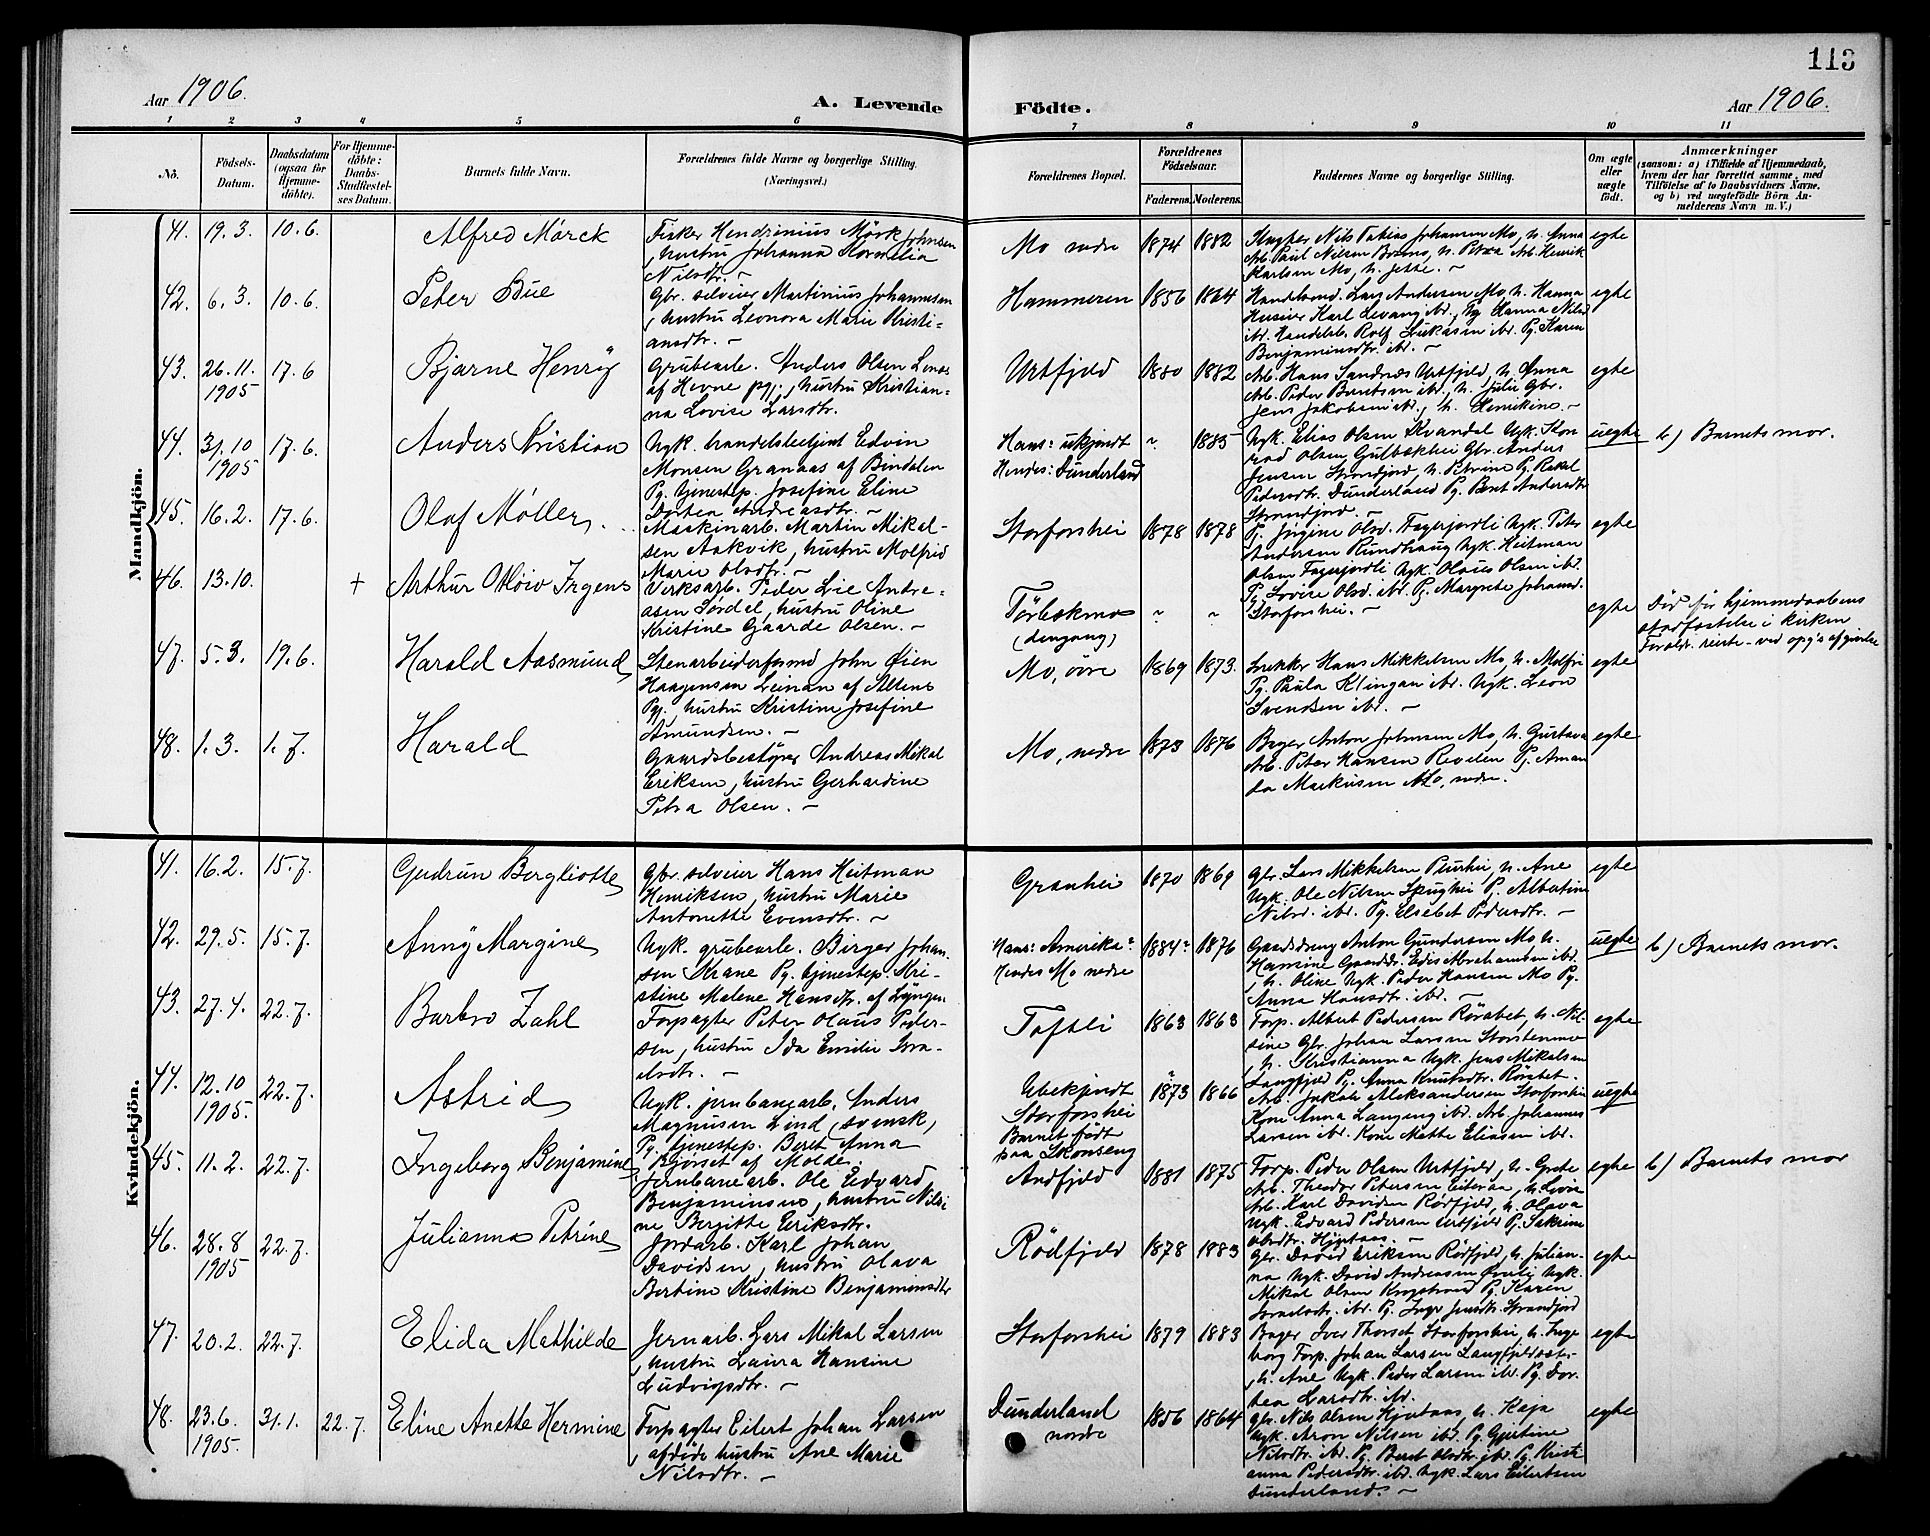 113
Aar 1906.
A. Levende
Födte.
Aar 1906.
1 2 3 4 5 6 7 8 9 10 11
No.
Födsels-
Datum.
Daabsdatum
(ogsaa for
Hjemme-
döbte).
For Hjemme-
döbte:
Daabs-
Stadfæstel-
ses Datum.
Barnets fulde Navn.
Forældrenes fulde Navne og borgerlige Stilling.
(Næringsvei.)
Forældrenes Bopæl.
Forældrenes
Födselsaar.
Faderens. Moderens.
Faddernes Navne og borgerlige Stilling.
Om ægte
eller
uægte
födt.
Anmærkninger
(saasom: a) i Tilfælde af Hjemmedaab,
hvem der har forrettet samme, med
Tilföielse af to Daabsvidners Navne,
og b) ved uægtefödte Börn An-
melderens Navn m. V.)
Mandkjön.
41. 19.3. 10.6. Alfred Mørck
Fisker Hendrinius Mørk Johnsen
, hustru Johanna Kornelia
Nilsdtr. –
Mo nedre 1874 1882
Nils Tobias Johansen Mo, h. Anna
Arb. Paul Nilsen h. Petrea Arb. Henrik
Karlsen Mo, h. Jette. –
egte
42. 6.3. 10.6. Peter Bue
Gbr. selveier Martinius Johannesen
, hustru Leonora Marie Kristi-
ansdtr. –
Hammeren 1856 1864
Lars Andersen Mo h. Hanna
Huseier Karl Levang ibd., Pg. Hanna Nilsd
ibd. Handelsb. Rolf Lukasen ibd. Pg. Karen
Benjaminsdtr. ibd. –
egte
43. 26.11. 1905 17.6 Bjarne Henry
Grubearb. Anders Olsen
af Hevne pgj., hustru Kristian-
na Lovise Larsdtr.
Urtfjeld 1880 1882
Arb. Hans Sandnæs Urtfjeld, h. Anna
Arb. Peder Berntsen ibd., h. Julie Gbr.
Jens Jakobsen ibd., h. Henrikine. –
egte
44. 31.10 1905 17.6. Anders Kristian
Ugk. handelsbetjent Edvin
Monsen Granaas af Bindalen
Pg. tjenestep. Josefine Eline
Dortea Andreasdtr. –
Hans: ukjendt
Hendes: Dunderland
" 1885
Ugk. Elias Olsen Kvandal Ugk. Kon
rad Olsen Gulbækhei Gbr. Anders
Jensen Strandjord, h. Petrine Pg. Rakel
Pedersdtr. Dunderland Pg. Berit Andersdtr
Strandjord. –
uegte b) Barnets mor.
45. 16.2. 17.6. Olaf Møller
Maskinarb. Martin Mikal-
sen Aakvik, hustru Molfrid
Marie Olsdtr. –
Storforshei 1878 1878
Pg. Jørgine Olsd. Fagerjordli Ugk. Peter
Andersen Rundhaug Ugk. Heitman
Olsen Fagerjordli Ugk. Olaus Olsen ibd.
Pg. Lovise Olsd. ibd. Pg. Margrete Johansd.
Storforshei. –
egte
46. 13.10. + Arthur Irgens
Virksarb. Peder Lie Andre-
asen Sørdel, hustru Oline
Kristine Gaarde Olsen. –
Tørbækmo
(dengang)
" "
egte
Død før hjemmedaabens
stadfæstelse i kirken
47. 5.3. 19.6. Harald Aasmund
Stenarbeiderformd John Øien
Haagensen Leinan af Altens
Pgj. hustru Kristine Josefine
Amundsen. –
Mo, øvre 1869 1873.
Hans Mikkelsen Mo, h. Molfri
Pg. Paula Klingan ibd. Ugk. Leon
Svendsen ibd. –
egte
48. 1.3. 1.7. Harald
Gaardsbestyrer Andreas Mikal
Eriksen, hustru Gerhardine
Petra Olsen. –
Mo, nedre 1873 1876
Bager Anton Johnsen Mo, h. Gustava
Arb. Peter Hansen Revelen Pg. Aman
da Markusen Mo, nedre.
egte
Kvindekjön.
41. 16.2. 15.7. Gudrun Bergliotte
Gbr. selveier Hans Heitman
Henriksen, hustru Marie
Antonette Evensdtr. –
Granhei 1870 1869
Gbr. Lars Mikkelsen h. Ane
Ugk. Ole Nilsen Pg. Albertine
Nilsd. ibd. Pg. Elsebet Pedersdtr. –
egte
42. 29.5. 15.7. Anny Margine
Ugk. grubearb. Birger Johan-
sen Krane Pg. tjenestep. Kri-
stine Malene Hansdtr. af Lyngen
Hans: Amerika:
Hendes Mo nedre
1884: 1876
Gaardsdreng Anton Gundersen Mo, h.
Hansine Edis Abrahamsen ibd.
, h. Oline Ugk. Peder Hansen Mo Pg.
Anna Hansdtr. ibd. –
uegte b) Barnets mor.
43. 27.4. 22.7. Barbro Zahl
Forpagter Peter Olaus Peder-
sen, hustru Ida Emilie Isra-
elsdtr. –
Toftli 1863 1863
Forp. Albert Pedersen Røvabet, h. Nil-
sine Gbr. Johan Larsen Storstenmo
, h. Kristianna Ugk. Jens Mikalsen
Langfjeld Pg. Anna Knutsdtr. Røvabet.
egte
44. 12.10 1905. 22.7. Astrid
Ugk. jernbanearb. Anders
Magnusen Lind, svensk,
Pg. tjenestep. Beret Anna
Bjørset af Molde.
Ubekjendt
Storforshei
Barnet født
paa Skonseng
1873 1866
Arb. Jakob Aleksandersen Storforshei
Kone Anna Langseng ibd. Arb. Johannes
Larsen ibd. Kone Mette Eliasen ibd.
uegte
45. 11.2. 22.7. Ingeborg Benjamine
Jernbanearb. Ole Edvard
Benjaminsen, hustru Nilsi
ne Bergitte Eriksdtr.
Andfjeld 1881 1875
Forp. Peder Olsen Urtfjeld, h. Grete
Arb. Theodor Petersen Eiteraa, h. Livie
Arb. Karl Davidsen Rødfjeld, h. Olava
Ugk. Edvard Pedersen Urtfjeld Pg. Sakrine
Olsdtr. Hjartaas. –
egte b) Barnets mor
46. 28.8 1905 22.7. Julianna Petrine
Jordarb. Karl Johan
Davidsen, hustru Olava
Bertine Kristine Benjaminsdtr
Rødfjeld 1878 1883
Gbr. David Eriksen Rødfjeld, h. Julian-
na Ugk. David Andreasen Ugk.
Mikal Olsen Krogstrand Pg. Karen
Israelsdtr. ibd. Pg. Inger Jensdtr. Strandjord
egte
47. 20.2. 22.7. Elida Mathilde
Jernarb. Lars Mikal Larsen
, hustru Laura Hansine
Ludvigsdtr. –
Storforshei 1879 1883
Bager Iver Thorset Storforshei, h. Inge
borg Forp. Johan Larsen
, h. Ane Ugk. Peder Larsen ibd. Pg. Dor-
tea Larsdtr. ibd.
egte
48. 23.6. 1905. 31.1. 22.7. Eline Anette Hermine
Forpagter Eilert Johan Larsen
, afdøde hustru Ane Marie
Nilsdtr. –
Dunderland
nordre
1856 1864
Gbr. Nils Olsen Hjartaas, h. Kaja
Ugk. Aron Nilsen ibd. Pg. Gjertine
Nilsdtr. ibd. Pg. Beret Olsdtr. ibd. Pg. Kristi
anna Pedersdtr. ibd. Ugk. Lars Eilertsen
Dunderland. –
egte